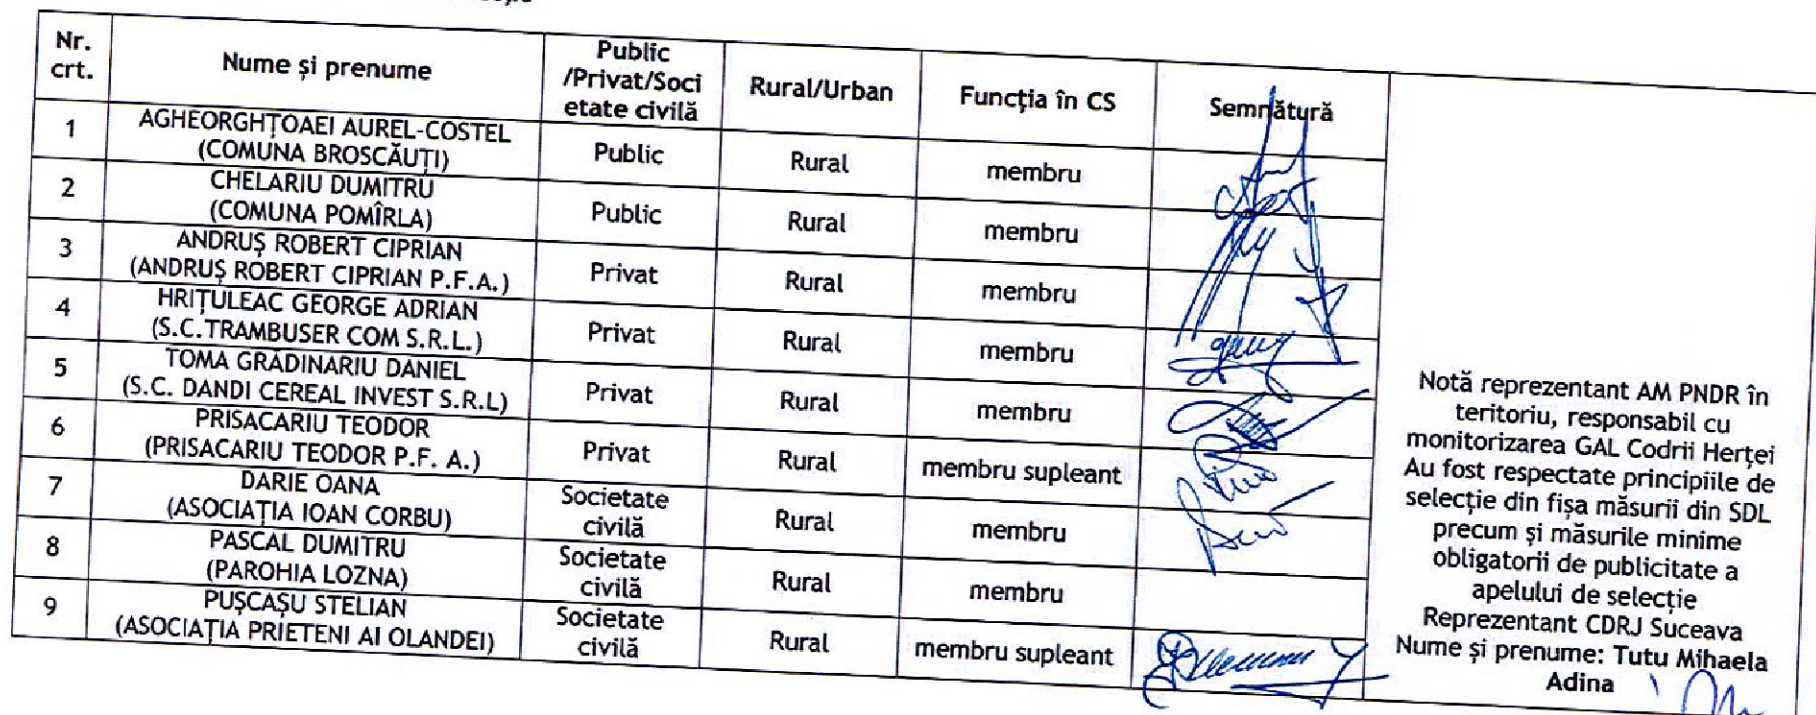 Nr.
crt.
Nume și prenume
Public
/Privat/Soci
etate civilă
Rural/Urban
Funcția în CS
Semnătură
1
AGHEORGHȚOAEI AUREL-COSTEL
(COMUNA BROSCĂUȚI)
Public
Rural
membru
2
CHELARIU DUMITRU
(COMUNA POMÎRLA)
Public
Rural
membru
3
ANDRUȘ ROBERT CIPRIAN
(ANDRUȘ ROBERT CIPRIAN P.F.A.)
Privat
Rural
membru
4
HRIȚULEAC GEORGE ADRIAN
(S.C.TRAMBUSER COM S.R.L.)
Privat
Rural
membru
5
TOMA GRĂDINARIU DANIEL
(S.C. DANDI CEREAL INVEST S.R.L)
Privat
Rural
membru
6
PRISACARIU TEODOR
(PRISACARIU TEODOR P.F. A.)
Privat
Rural
membru supleant
7
DARIE OANA
(ASOCIAȚIA IOAN CORBU)
Societate
civilă
Rural
membru
8
PASCAL DUMITRU
(PAROHIA LOZNA)
Societate
civilă
Rural
membru
9
PUȘCAȘU STELIAN
(ASOCIAȚIA PRIETENI AI OLANDEI)
Societate
civilă
Rural
membru supleant
Notă reprezentant AM PNDR în
teritoriu, responsabil cu
monitorizarea GAL Codrii Herței
Au fost respectate principiile de
selecție din fișa măsurii din SDL
precum și măsurile minime
obligatorii de publicitate a
apelului de selecție
Reprezentant CDRJ Suceava
Nume și prenume: Tutu Mihaela
Adina